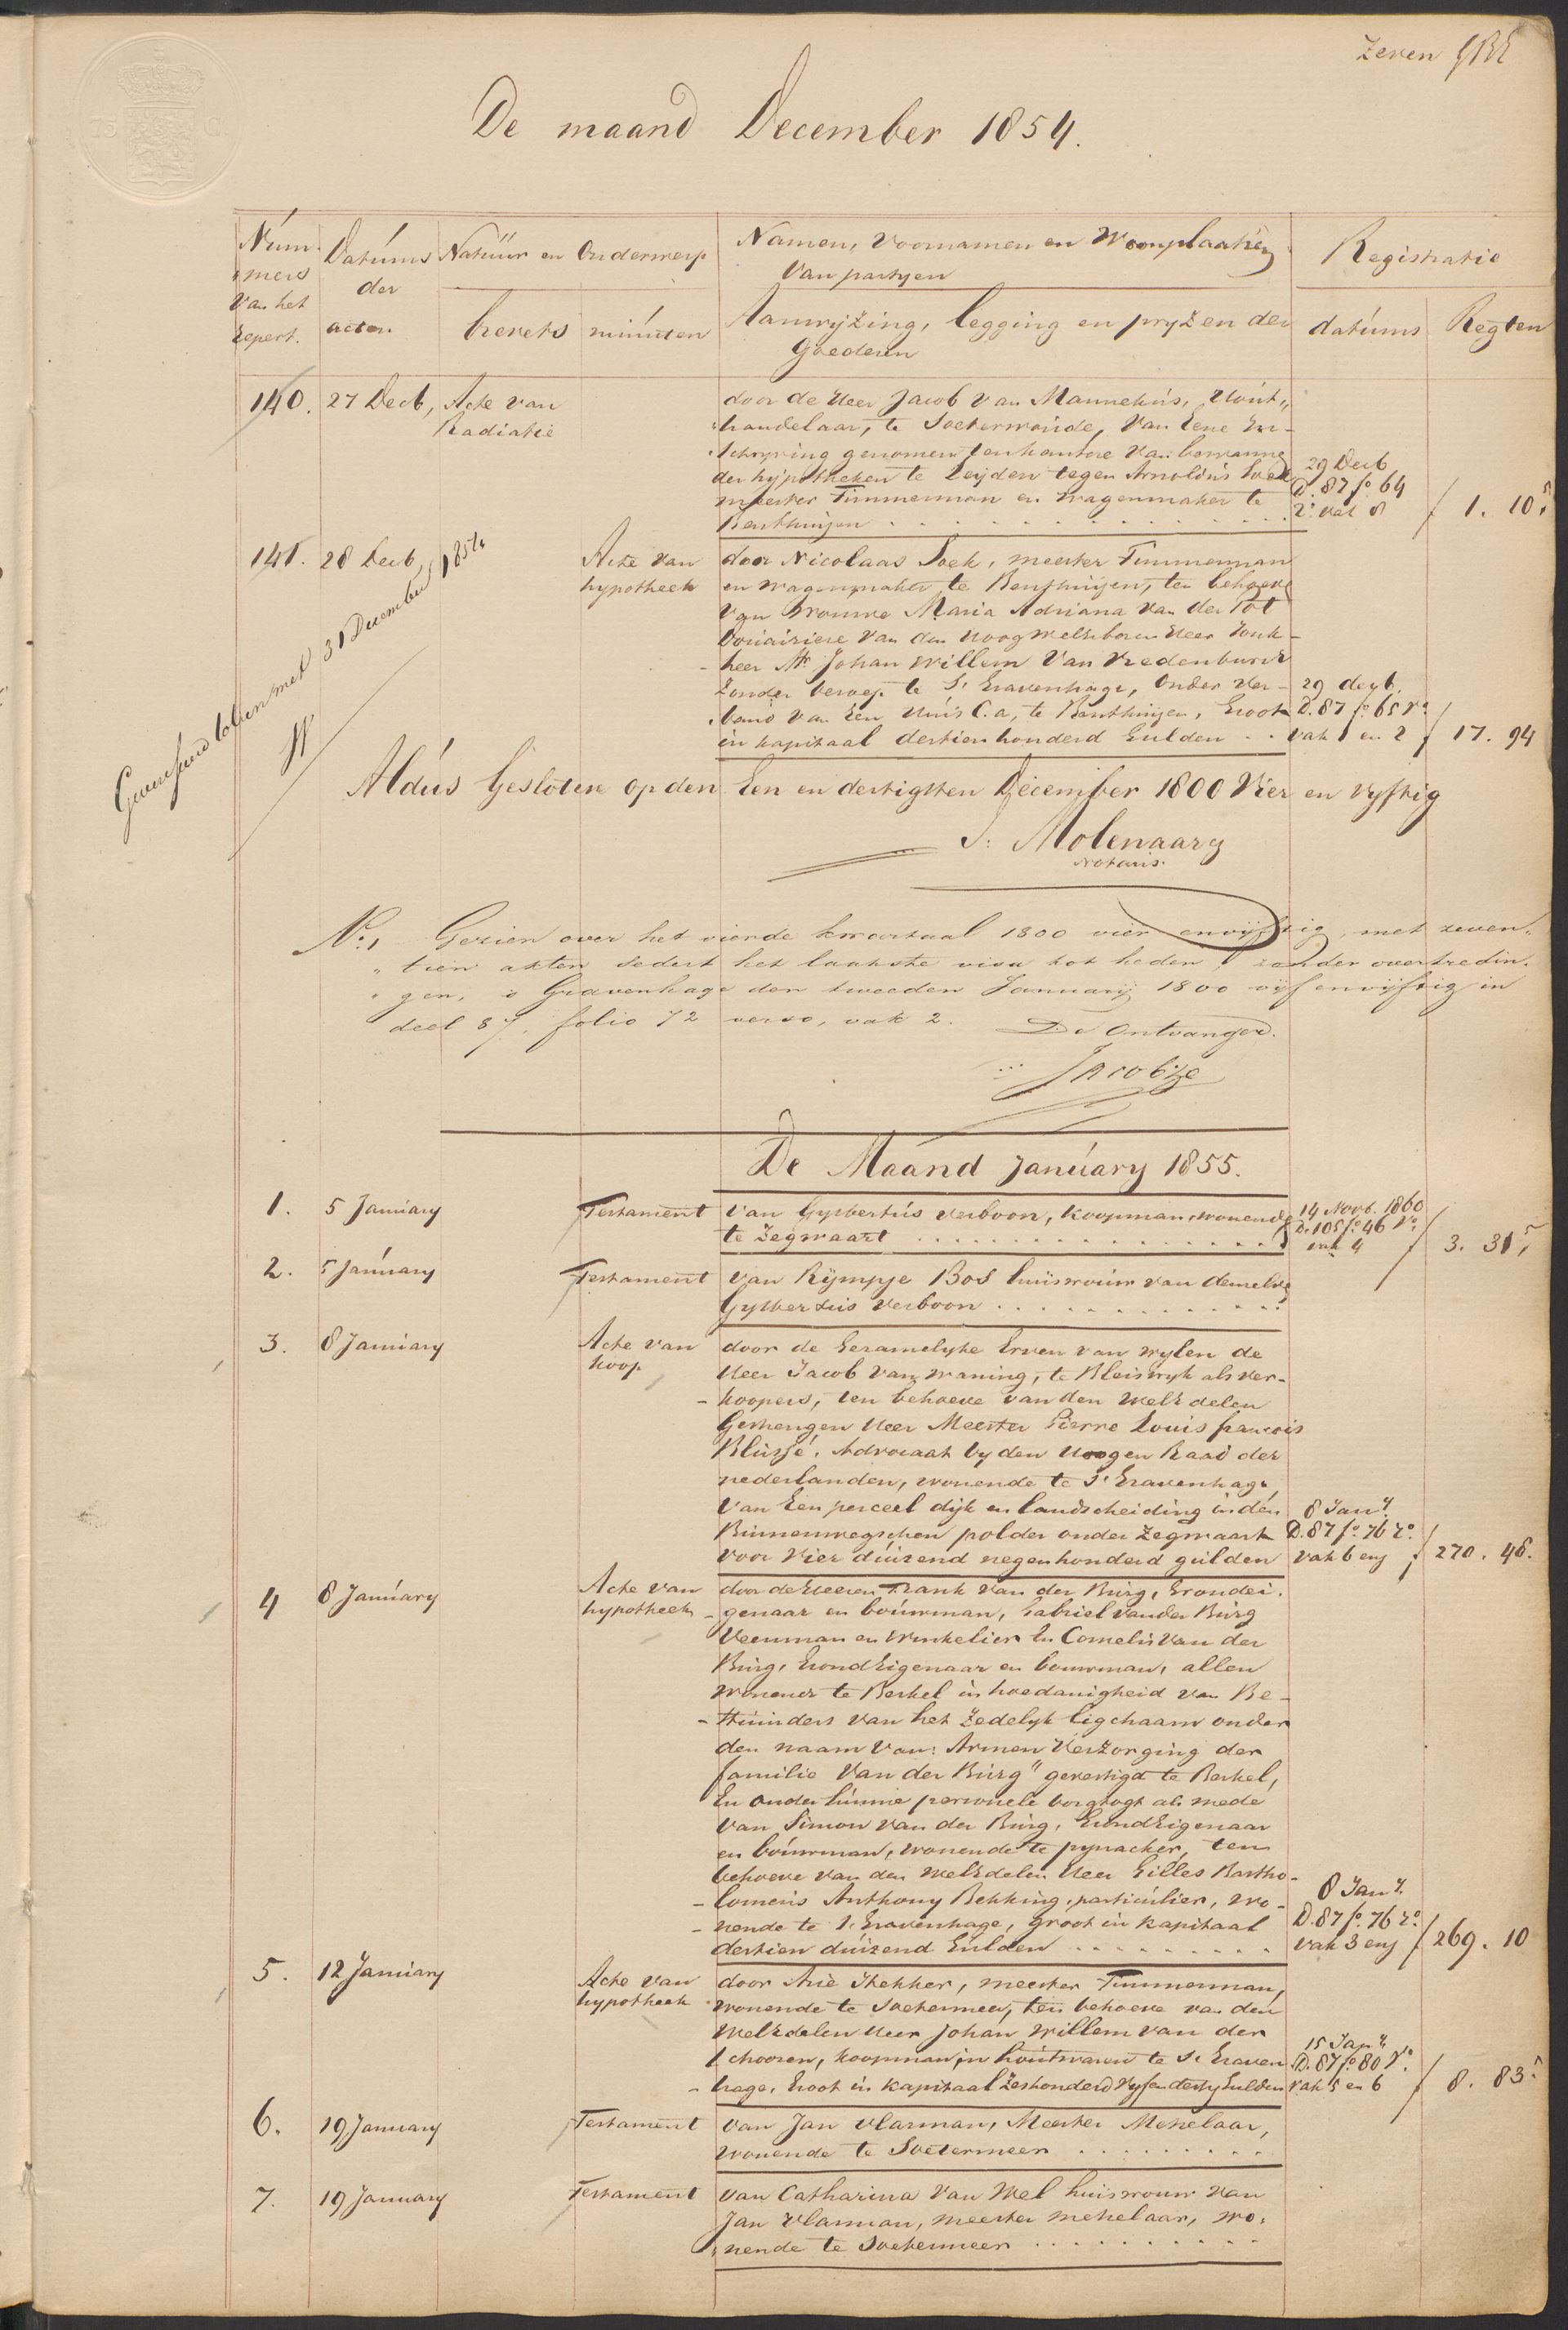 Zeven
De maand December 1854.
Num-
mers
van het
Repert.
Datums
der
acten.
Natuur en Onderwerp
brevets
minuten
Namen, Voornamen en Woonplaatsen
van partyen
Aanwyzing, legging en pryzen der
Goederen
Registratie
datums
Regten
140. 27 Decb, Acte van
Radiatie
door de Heer Jacob van Mannekus, Hout-
handelaar, te Soeterwoude, van Eene In-
schryving genomen ten kantore van bewaring
der hypotheken te Leyden tegen Arnoldus Soek
meester Timmerman en wagenmaker te
Benthuizen
29 Decb
D. 87 fo. 64
ro. vak 8
1. 10 5
141. 28 Decb
Acte van
hypotheek
door Nicolaas Soek, meester Timmerman
en wagenmaker te Benthuizen, ten behoeve
van Vrouwe Maria Adriana van der Tot
Douairiere van den Hoog Welgeboren Heer Jonk-
heer Mr. Johan Willem van Vredenburch
zonder beroep te S' Gravenhage, Onder Ver-
band van Een Huis C.a, te Benthuizen, Groot
in kapitaal dertien honderd Gulden
29 decb.
D. 87 fo. 65 ro.
vak 1 en 2
17. 94
met 31 December 1854
Aldus Gesloten op den Een en dertigsten December 1800 Vier en Vyftig
J. Molenaar
Notaris.
No. 1 Gezien over het vierde kwartaal 1800 vier envijftig, met zeven-
tien akten sedert het laatste visa tot heden, zonder overtredin-
gen, 's Gravenhage den tweeden Januarij 1800 vijf envijftig in
deel 87, folio 72 verso, vak 2.
De Ontvanger.
Jacobze
De Maand January 1855.
1. 5 January
Testament
van Gysbertus Verboon, Koopman, wonende
te Zegwaart
14 Novb. 1860
D. 105 fo. 46 Vo.
vak 4
3. 31 5
2. 5 January
Testament
van Rympje Bos huisvrouw van denzelve
Gysbertus Verboon
3. 8 January
Acte van
koop
door de Gezamelyke Erven van wylen de
Heer Jacob van Waning, te Bleiswyk als ver-
koopers, ten behoeve van den WelEdelen
Gestrengen Heer Meester Pierre Louis francois
Blussé, Advocaat by den Hoogen Raad der
nederlanden, wonende te S' Gravenhage,
van Een perceel dyk en landscheiding in den
Binnenwegschen polder onder Zegwaart
voor Vier duizend negenhonderd gulden
8 Jany.
D. 87 fo. 76 ro.
vak 6 env
270. 48.
4 8 January
Acte van
hypotheek
door de Heeren Frank van der Burg, Grondei-
genaar en bouwman, Gabriel van der Burg
Veenman en Winkelier En Cornelis van der
Burg, GrondEigenaar en bouwman, allen
wonende te Berkel in hoedanigheid van Be-
stuurders van het Zedelyk ligchaam onder
den naam van: Armen Verzorging der
familie Van der Burg" gevestigd te Berkel,
En onder hunne personele borgtogt als mede
van Simon van der Burg, GrondEigenaar
en bouwman, wonende te pynacker, ten
behoeve van den WelEdelen Heer Gilles Bartho-
lomeus Anthony Bekking, particulier, wo-
nende te S' Gravenhage, groot in kapitaal
dertien duizend Gulden
8 Jany.
D. 87 fo. 76 ro.
vak 3 env
269. 10
5. 12 January
Acte van
hypotheek
door Arie Stekker, meester Timmerman,
wonende te Soetermeer, ten behoeve van den
WelEdelen Heer Johan Willem van der
Schooren, Koopman in houtwaren te S' Graven-
hage, Groot in Kapitaal Zeshonderd Vyf en dertig Gulden
15 Jany.
D. 87 fo. 80 Vo.
vak 5 en 6
8. 83 5
6. 19 January
Testament
van Jan Vlasman, Meester Metzelaar,
wonende te Soetermeer
7. 19 January
Testament
van Catharina van Wel huisvrouw van
Jan Vlasman, meester metzelaar, wo-
nende te Soetermeer